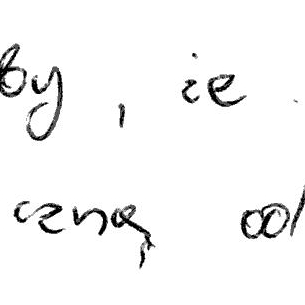 by, że
czną od